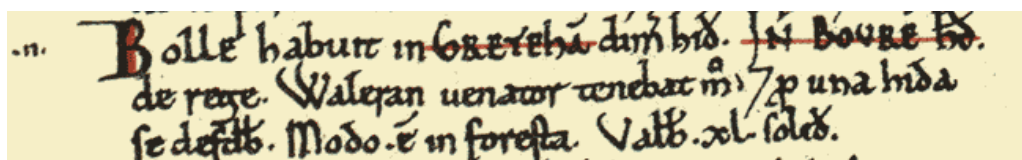 .n. Bolle habuit in GRETEHĀ dim̄ hid̄. IN BOVRE HD̄.
de rege. Waleran uenator tenebat m̊ ⁊ ꝑ una hida
se defdb̄. Modo .ē in foresta. Valb̄ .xl. solid̄.